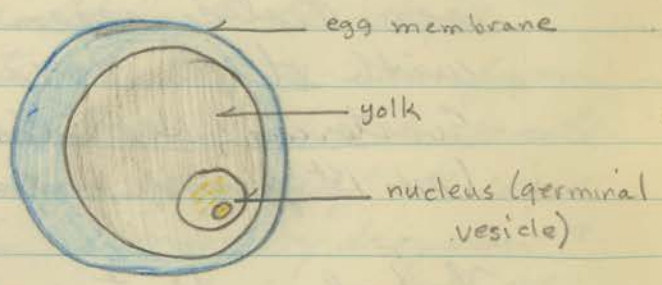 egg membrane
yolk
nucleus (germinal
vesicle)